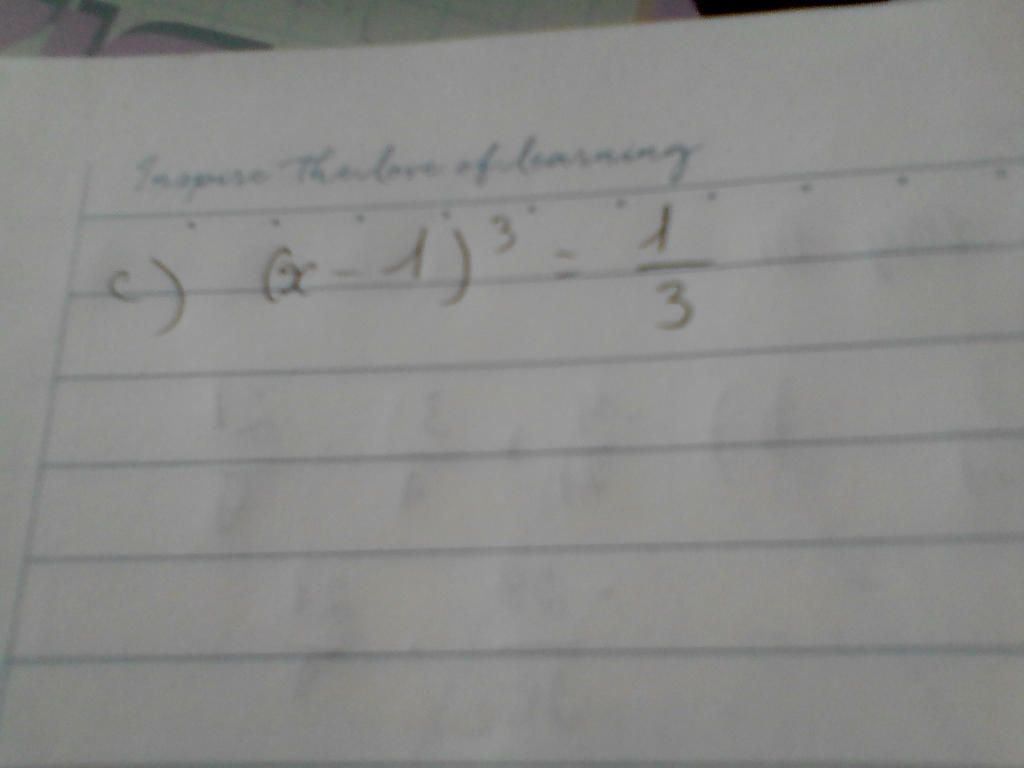 Inspire the love of learning
c) (x - 1)³ = 1/3